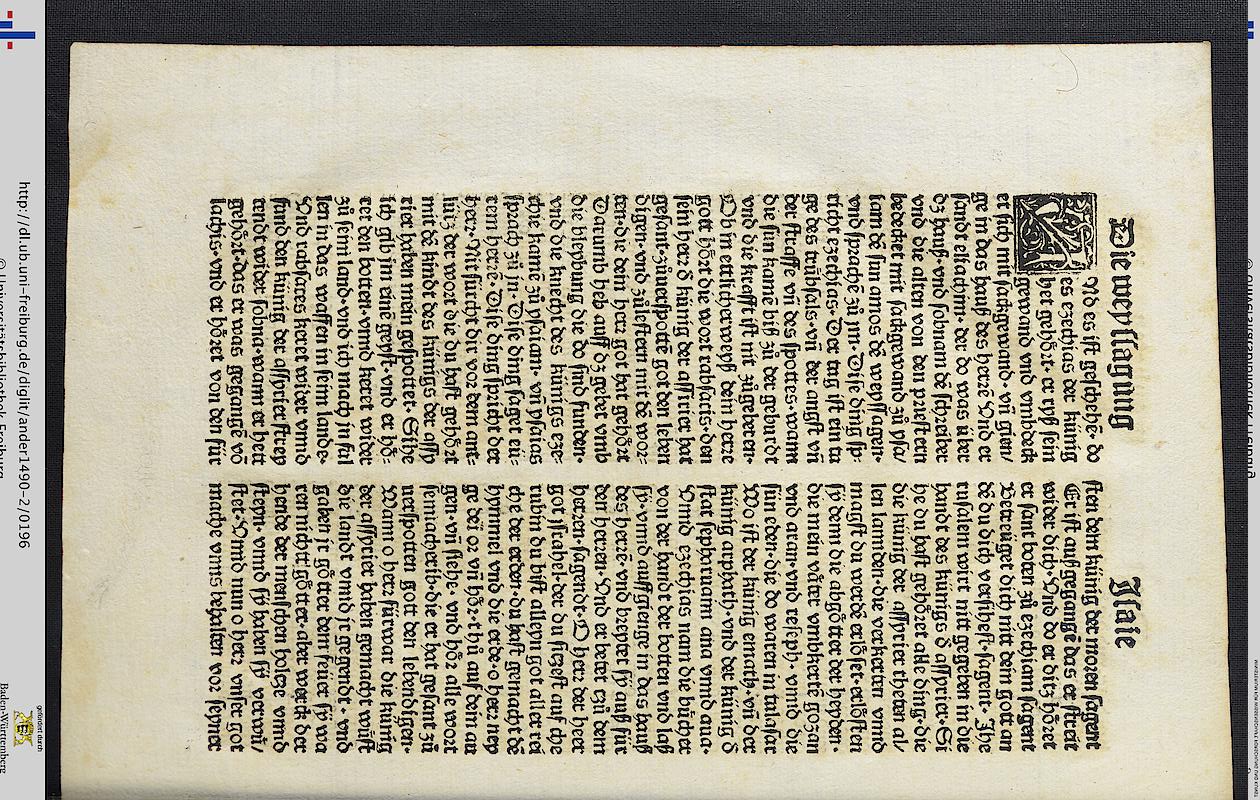 Die weyssagung Isaie
Nd es ist geschehē·do
es ezechias der künig
het gehört·er ryß sein
gewand vnd vmbdeck
et sich mit sackgewand·vñ gien/
ge in das hauß des herrē Vnd er
sandt eliachim·der do was über
dz hauß·vnd sobnam dē schreiber
vnd die alten von den priestern
bedecket mit sackgewand zů ysa/
iam dē sun amos dē weyssagen·
vnd sprachē zů im·Dise ding sp=
richt ezechias·Der tag ist ein ta
ge des trübsals·vñ der angst vñ
der straffe vñ des spottes·wann
die sün kamē biß zů der geburdt
vnd die krafft ist nit zůgeberen·
Ob in ettlicherweyß dein herre
gott hört die wort rabsacis·den
sein herr d künig der assirier hat
gesant·zůuerspottē got den leben
digen·vnd zůlestern mit dē wor=
ten·die dein herr got hat gehört
Darumb heb auff dz gebet vmb
die bleybung die do sind funden·
vnd die knecht des künigs eze=
chie kamē zů ysaiam·vñ ysaias
sprach zů jn·Dise ding saget eü=
rem herrē·Dise ding spricht der
herr·Nit fürcht dir vor dem ant=
lütz der wort die du hast gehört
mit dē kindt des künigs der assy
rier haben mein gespottet·Sihe
ich gib im eine geyst·vnd er hö=
ret den botten·vnnd keret wider
zů seim land·vnd ich mach jn fal
len in das waffen in seim lande·
Vnd rabsaces keret wider vnnd
fand den künig der assyrier streyt
tendt wider lobna·wann er hett
gehört·das er was gegangē vō
lachis·vnd er höret von den für
sten dem künig der moren sagent
Er ist auß gegangē das er streit
wider dich Vnd do er ditz höret
er sant boten zů ezechiam sagent
Betreüget dich nitt dein gott an
dē du dich versihest·sagent·Jhe
rusalem wirt nit gegeben in die
handt des künigs d assyrier·Si
he du hast gehöret alle ding·die
die künig der assyrier theten al/
len lannden·die verkerten vnnd
magst du werdē erlößet·erlößten
sy denn die abgötter der heyden·
die mein väter vmbkertē gozan
vnd aran·vnd reseph·vnnd die
sün eden·die do waren in talasar
Wo ist der künig emach·vñ der
künig arphath·vnd der künig d
stat sepharuaim ana vnnd aua·
Vnnd ezechias nam die bücher
von der handt der botten vnd laß
sy·vnnd auffgienge in das hauß
des herrē·vnd breytet sy auß für
den herren·Vnd er betet zů dem
herren·sagendt·O herr der heer
got israhel·der du sizest auf che
rubin du bist alleyn got aller rei
che der erden·du hast gemacht dē
hymmel vnd die erde·o herr ney
ge dei or vñ hör·thů auf dein au
gen·vñ siehe·vnd hör alle wort
sennacherib·die er hat gesant zů
uerspotten gott den lebendigen·
Wann o herr fürwar die künig
der assyrier haben gemacht wüst
die landt vnnd jr gegendt·vnd
gaben jr götter dem feüer sy wa
ren nicht götter·aber werck der
hende der menschen holtze vnnd
steyn·vnnd sy haben sy verwü/
stet·Vnnd nun o herr vnser got
mache vnns behalten vor seyner
http://dl.ub.uni-freiburg.de/diglit/ander1490-2/0196
© Universitätsbibliothek Freiburg
gefördert durch
Baden-Württemberg